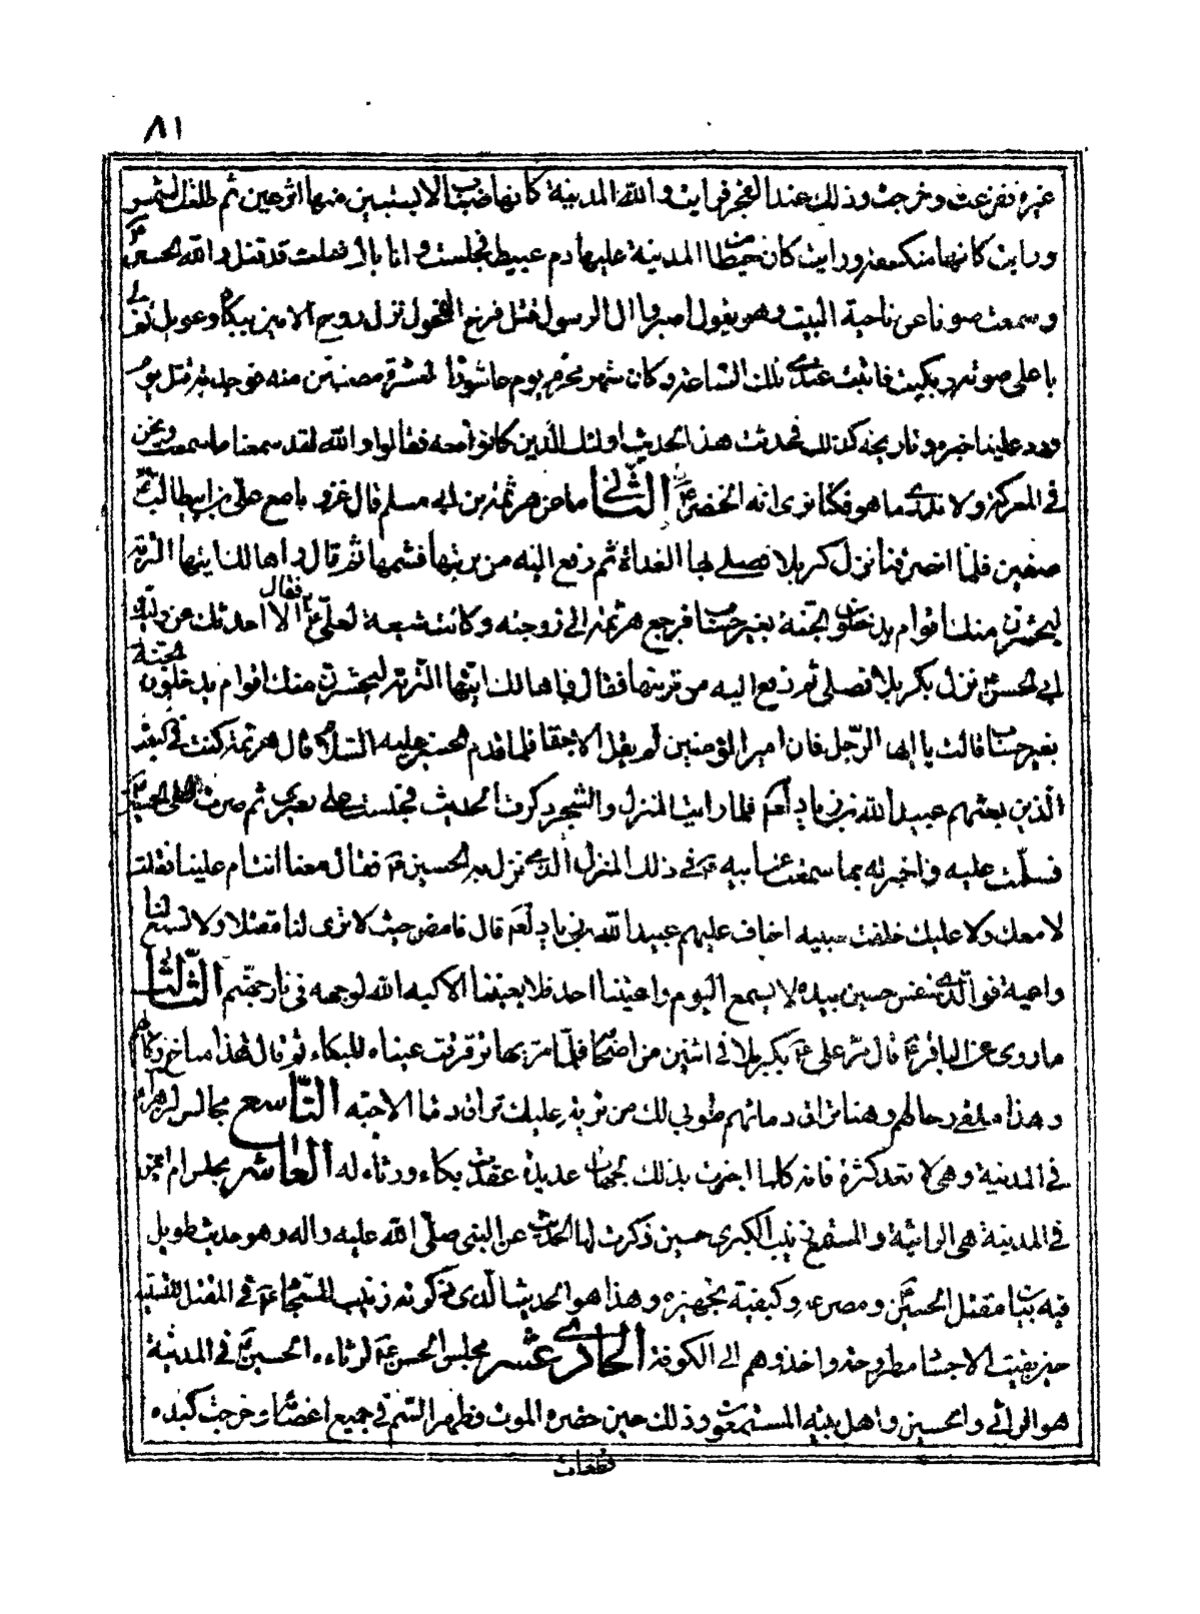 ٨١
غيره ففزعت وخرجت وذلك عند الفجر فرايت والله المدينة كانها ضباب لا يستبين منها اثر عين ثم طلعت الشمس
ورايت كانها منكسفة ورايت كان حيطان المدينة عليها دم عبيط فجلست وانا باك فقلت قد قتل والله الحسين ع
وسمعت صوتا عن ناحية البيت وهو يقول اصبروا ال الرسول قتل فرخ النحول نزل روح الامين ببكاء وعويل ثم بكى
باعلى صوته وبكيت فاثبت عندى تلك الساعة وكان شهر محرم يوم عاشورا لعشرة مضين منه فوجدته قتل يوم
ورد علينا خبره وتاريخه كذلك فحدثت هذا الحديث اولئك الذين كانوا معه فقالوا والله لقد سمعنا ما سمعت ونحن
فى المعركة ولا ندرى ما هو فكنا نرى انه الخضر ع الثانى ما عن هرثمة بن ابى مسلم قال غزونا مع على بن ابيطالب ع
صفين فلما انصرفنا نزل كربلا فصلى بها الغداة ثم رفع اليه من تربتها فشمها ثم قال واها لك ايتها التربة
ليحشرن منك اقوام يدخلون الجنة بغير حساب فرجع هرثمة الى زوجته وكانت شيعة لعلى ع فقال الا احدثك عن وليك
ابى الحسن ع نزل بكربلا فصلى ثم رفع اليه من تربتها فقال واها لك ايتها التربة ليحشرن منك اقوام يدخلون الجنة
بغير حساب قالت يا ايها الرجل فان امير المؤمنين لم يقل الا حقا فلما قدم الحسين عليه السلام قال هرثمة كنت فى البعث
الذين بعثهم عبيد الله بن زياد لعنهم فلما رايت المنزل والشجر ذكرت الحديث فجلست على بعيرى ثم صرت الى الحسين ع
فسلمت عليه واخبرته بما سمعت من ابيه ع فى ذلك المنزل الذى نزل به الحسين ع فقال معنا انت ام علينا فقلت
لا معك ولا عليك خلفت صبية اخاف عليهم عبيد الله بن زياد لعنه قال فامض حيث لا ترى لنا مقتلا ولا تسمع لنا
واعية فو الذى نفس حسين بيده لا يسمع اليوم واعيتنا احد فلا يعيننا الا كبه الله لوجهه فى نار جهنم الثالث
ما روى عن الباقر ع قال مر على ع بكربلا فى اثنين من اصحابه فلما مر بها ترقرقت عيناه للبكاء ثم قال هذا مناخ ركابهم
وهذا ملقى رحالهم وهنا تراق دمائهم طوبى لك من تربة عليك تراق دماء الاحبه التاسع مجالس الزهراء
فى المدينة وهى لا تعد كثرة فانه كلما اخبرت بذلك بجهات عديدة عقدت بكاء ورثاء له العاشر مجلس ام ايمن
فى المدينة هى الراثية والمستمع زينب الكبرى حسين ذكرت لها الحديث عن النبى صلى الله عليه واله وهو حديث طويل
فيه بيان مقتل الحسين ع ومصرعه وكيفية تجهيزه وهذا هو الحديث الذى ذكرته زينب للسجاد ع فى المقتل لتسليته
حين بقيت الاجساد مطروحة واخذوهم الى الكوفة الحادى عشر مجلس الحسن ع لرثاء الحسين ع فى المدينة
هو الراثى والحسين واهل بيته المستمعون وذلك حين حضره الموت وظهر السم فى جميع اعضائه وخرجت كبده
قطعات